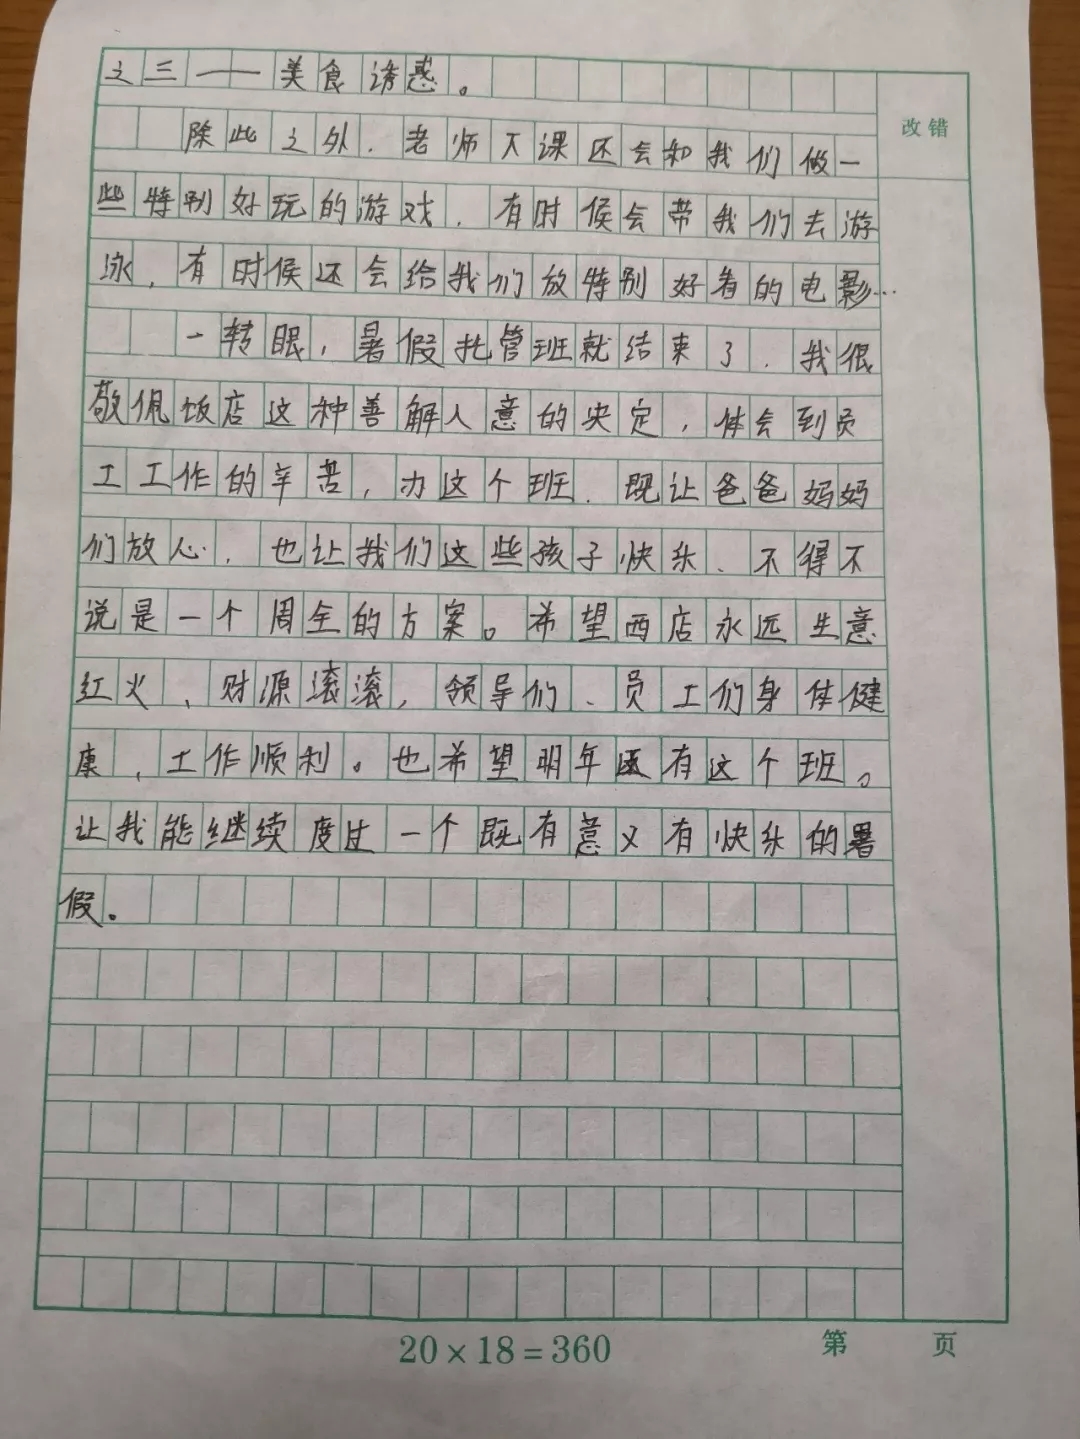 之三——美食诱惑。
改错
除此之外，老师下课还会和我们做一
些特别好玩的游戏，有时候会带我们去游
泳，有时候还会给我们放特别好看的电影…
一转眼，暑假托管班就结束了，我很
敬佩饭店这种善解人意的决定，体会到员
工工作的辛苦，办这个班、既让爸爸妈妈
们放心，也让我们这些孩子快乐、不得不
说是一个周全的方案。希望西店永远生意
红火、财源滚滚，领导们、员工们身体健
康，工作顺利。也希望明年还有这个班。
让我能继续度过一个既有意义有快乐的暑
假。
20×18=360
第 页